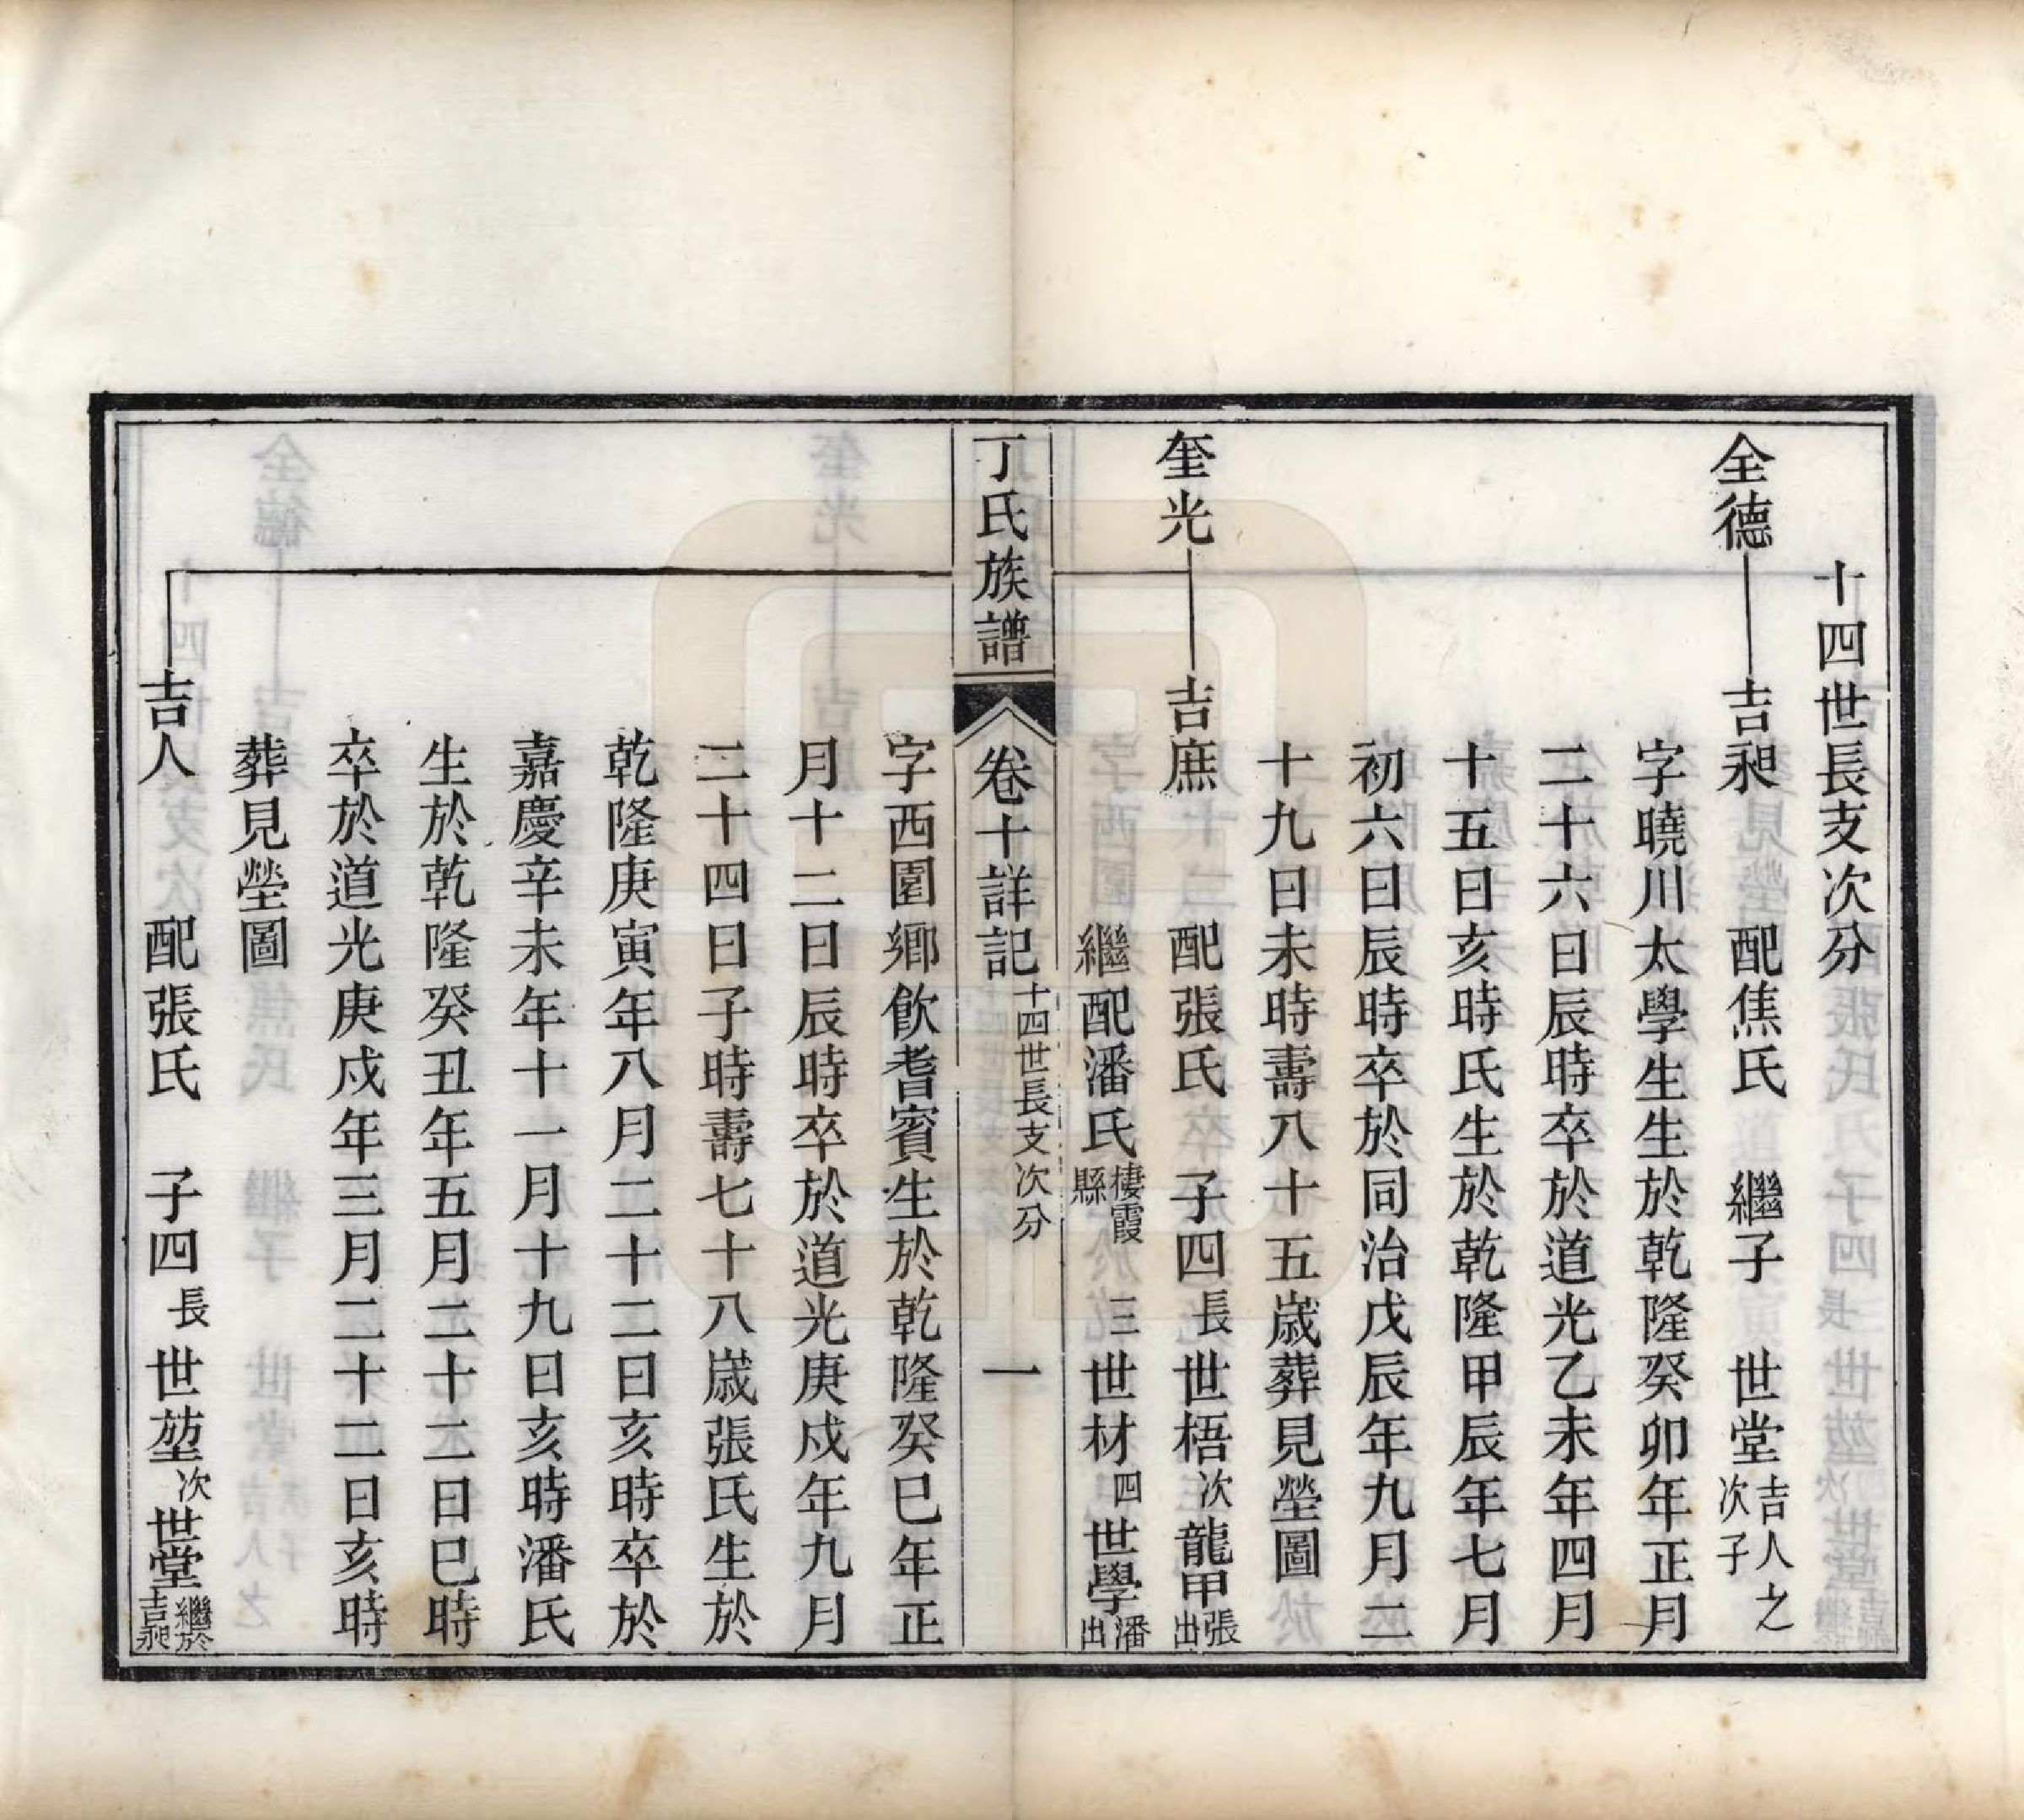 十四世長支次分
全德 吉昶 配焦氏 繼子 世堂 吉人之次子
字曉川太學生生於乾隆癸卯年正月
二十六日辰時卒於道光乙未年四月
十五日亥時氏生於乾隆甲辰年七月
初六日辰時卒於同治戊辰年九月二
十九日未時壽八十五歲葬見塋圖
奎光 吉庶 配張氏 子四 長 世梧 次 龍甲 張出
繼配潘氏 棲霞縣 三 世材 四 世學 潘出
丁氏族譜 卷十詳記 十四世長支次分 一
字西園鄉飲耆賓生於乾隆癸巳年正
月十二日辰時卒於道光庚戌年九月
二十四日子時壽七十八歲張氏生於
乾隆庚寅年八月二十二日亥時卒於
嘉慶辛未年十一月十九日亥時潘氏
生於乾隆癸丑年五月二十二日巳時
卒於道光庚戌年三月二十二日亥時
葬見塋圖
吉人 配張氏 子四 長 世堃 次 世堂 繼於吉昶